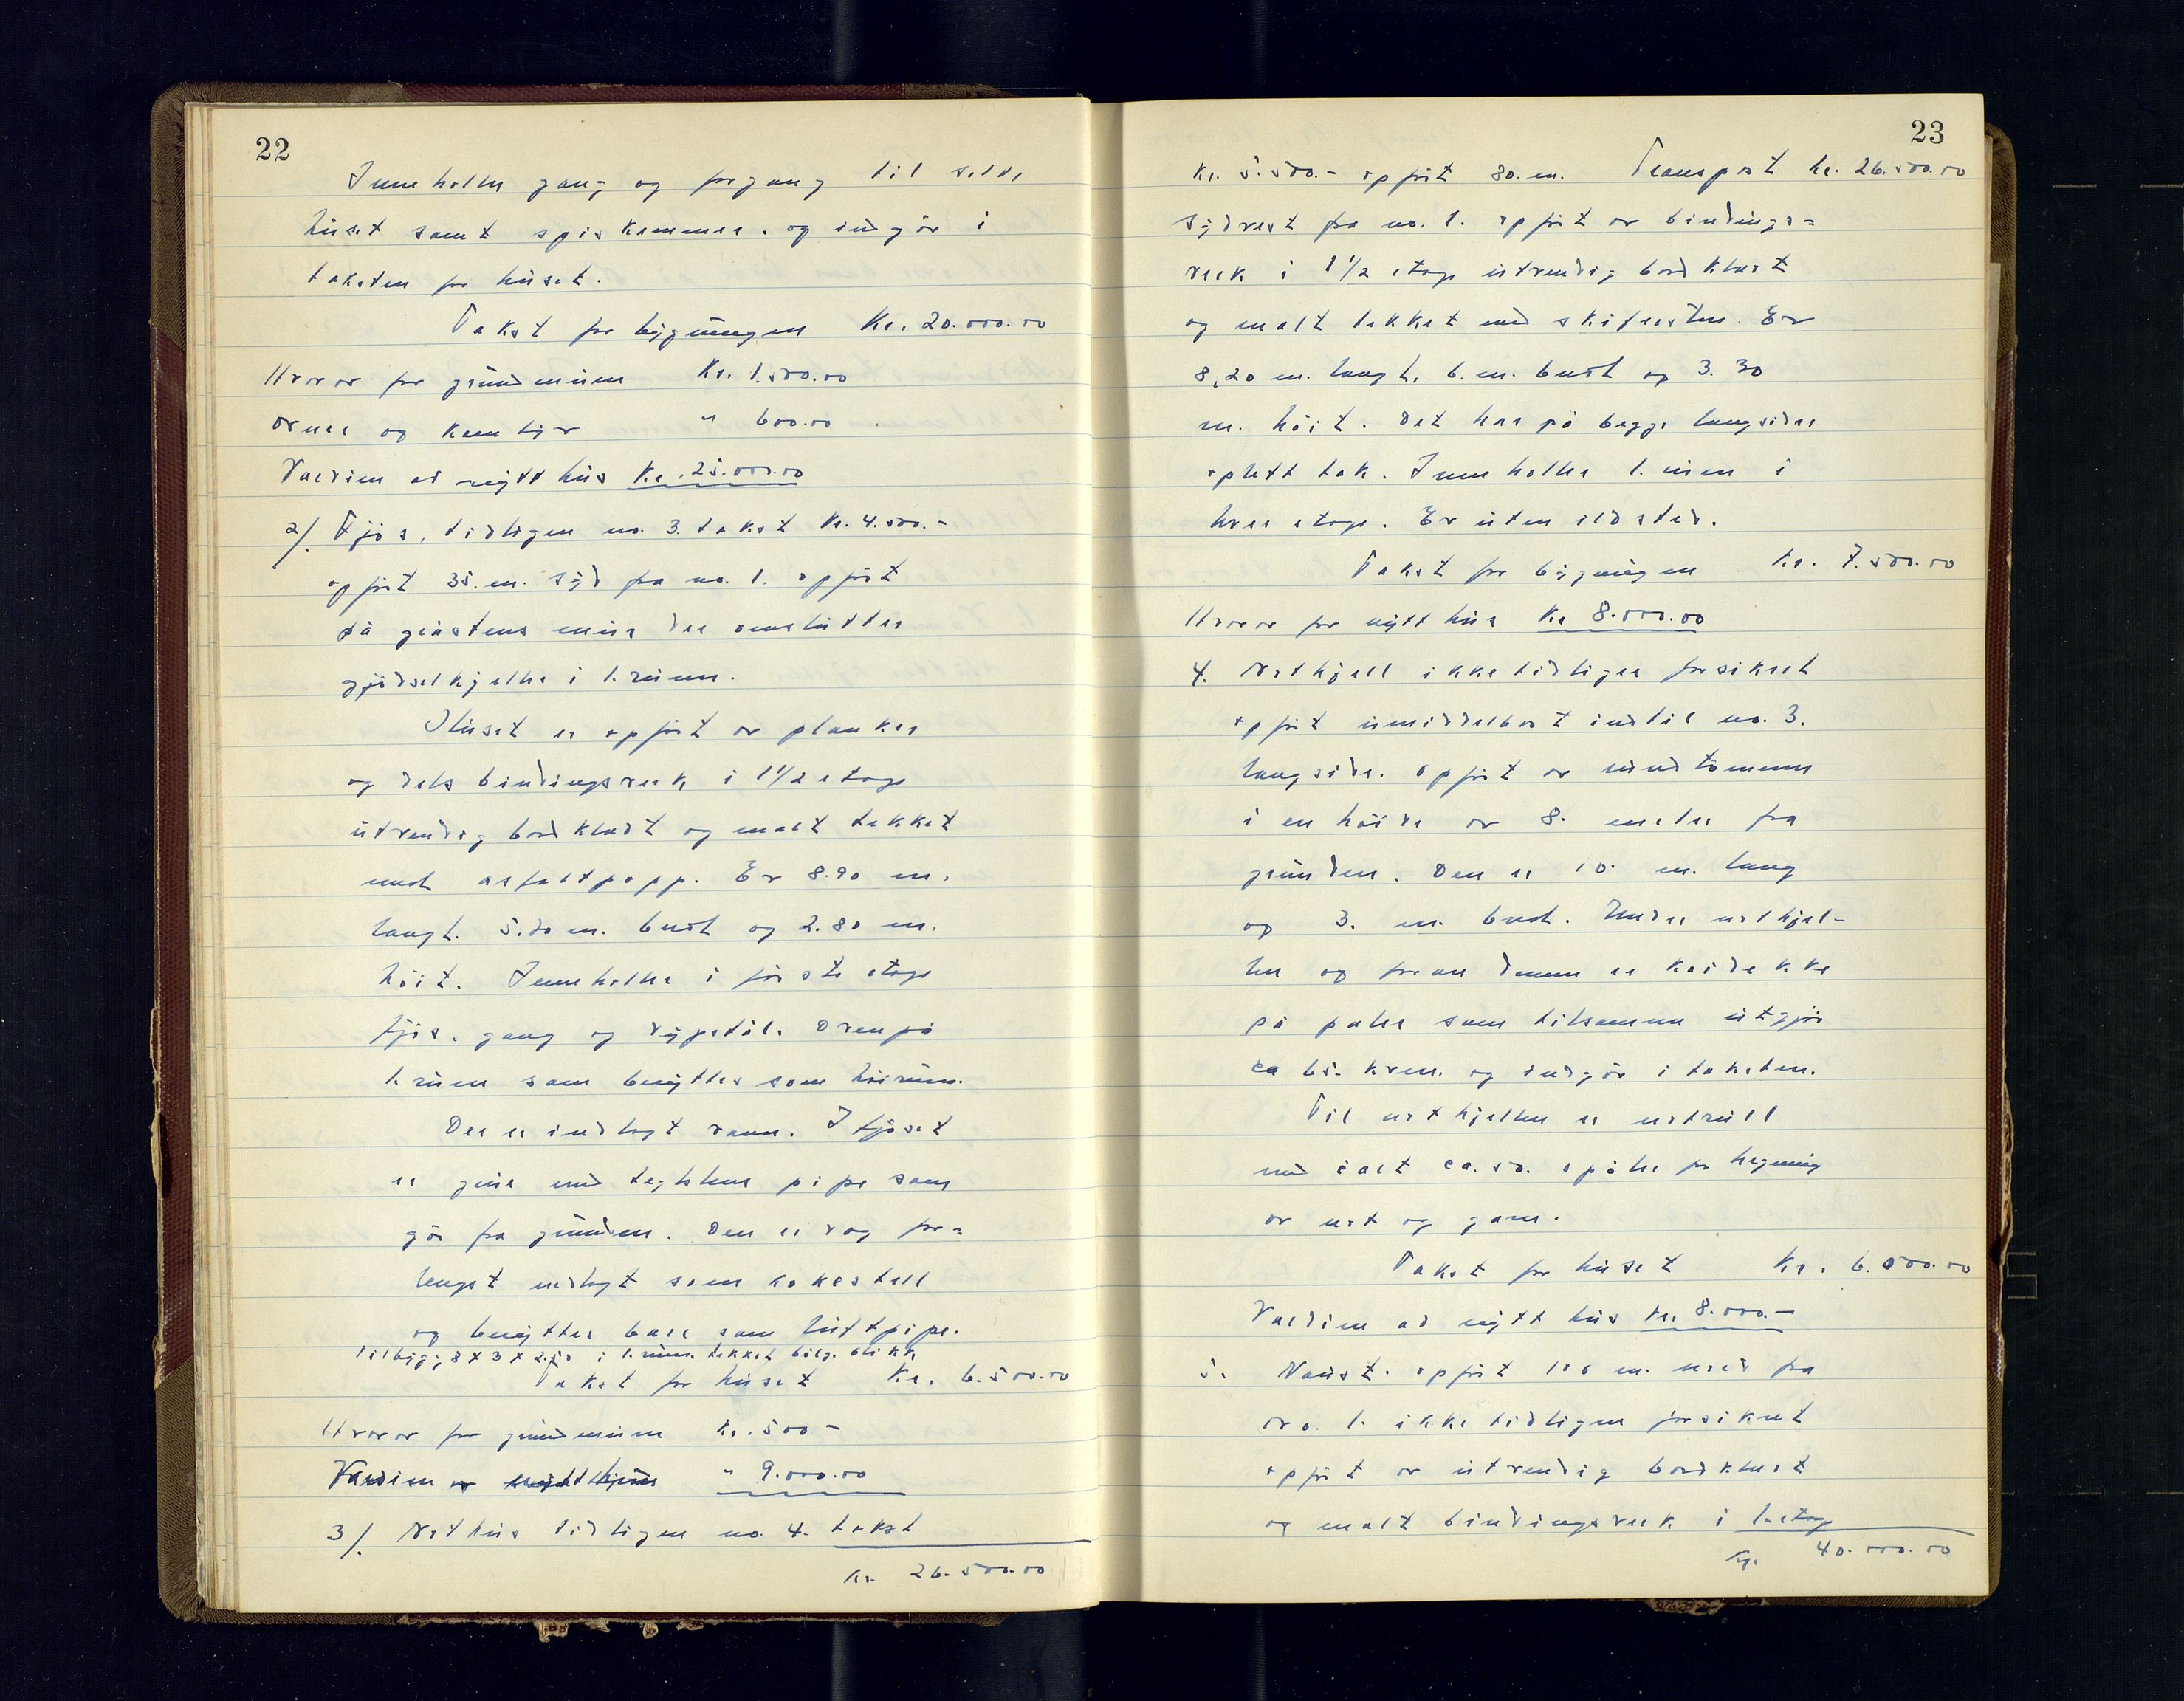 22
Inneholder gang og forgang til selve
huset samt spiskammer. og indgår i
taksten for huset.
Takst for bygningen Kr. 20.000.00
Hvorav for grundmuren Kr. 1.500.00
ovner og komfyr " 600.00
Værdien as nytt hus Kr. 25.000.00
2/. Fjøs, tidligere no. 3. takst Kr. 4.500.-
opført 35. m. syd fra no. 1. opført
på gråstens mur der omslutter
gjødselkjeller i 1. rum.
Huset er opført av planker
og dels bindingsverk i 1 1/2 etage
utvendig bordklædt og malt tekket
med asfaltpapp. Er 8.90 m.
langt. 5.20 m. bredt og 2.80 m.
høit. Inneholder i første etage
fjøs, gang og Ovenpå
1. rum som benyttes som høirum.
Der er indlagt vann. I fjøset
er grue med teglstens pipe som
går fra grunden. Den er dog for=
lengst nedlagt som kokested
og benyttes bare som luftpipe.
Tilbygg 8 x 3 x 2.50 i 1. rum. tekket bølg. blikk
Takst for huset Kr. 6.500.00
Hvorav for grundmuren Kr. 500-
Værdien av nytt hus " 9.000.00
3/. Nothus tidligere no. 4. takst
Kr. 26.500.00
23
Kr. 5.500.- opført 80. m. Transport kr. 26.500.00
sydvest fra no. 1. opført av bindings=
verk i 1 1/2 etage utvendig bordklædt
og malt tekket med skifersten. Er
8,20 m. langt, 6. m. bredt og 3.30
m. høit. Det har på begge langsider
oplett tak. Inneholder 1. rum i
hver etage. Er uten ildsted.
Takst for bygningen Kr. 7.500.00
Hvorav for nytt hus Kr 8.000.00
4. Notkjell ikke tidligere forsikret
opført umiddelbart indtil no. 3.
langside. Opført av rundtømmer
i en høide av 8. meter fra
grunden. Den er 10. m. lang
og 3. m. bred. Under notkjel-
len og foran denne er kaidekke
på pæler som tilsammen utgjør
ca 65. kvm. og indgår i taksten.
Til notkjellen er notrull
med ialt ca. 50. spåler for hegning
av not og garn.
Takst for huset Kr. 6.000.00
Værdien as nytt hus Kr. 8.000.-
5. Naust. opført 100 m. nord fra
no. 1. ikke tidligere forsikret
opført av utvendig bordklædt
og malt bindingsverk i 1. etage
Kr. 40.000.00